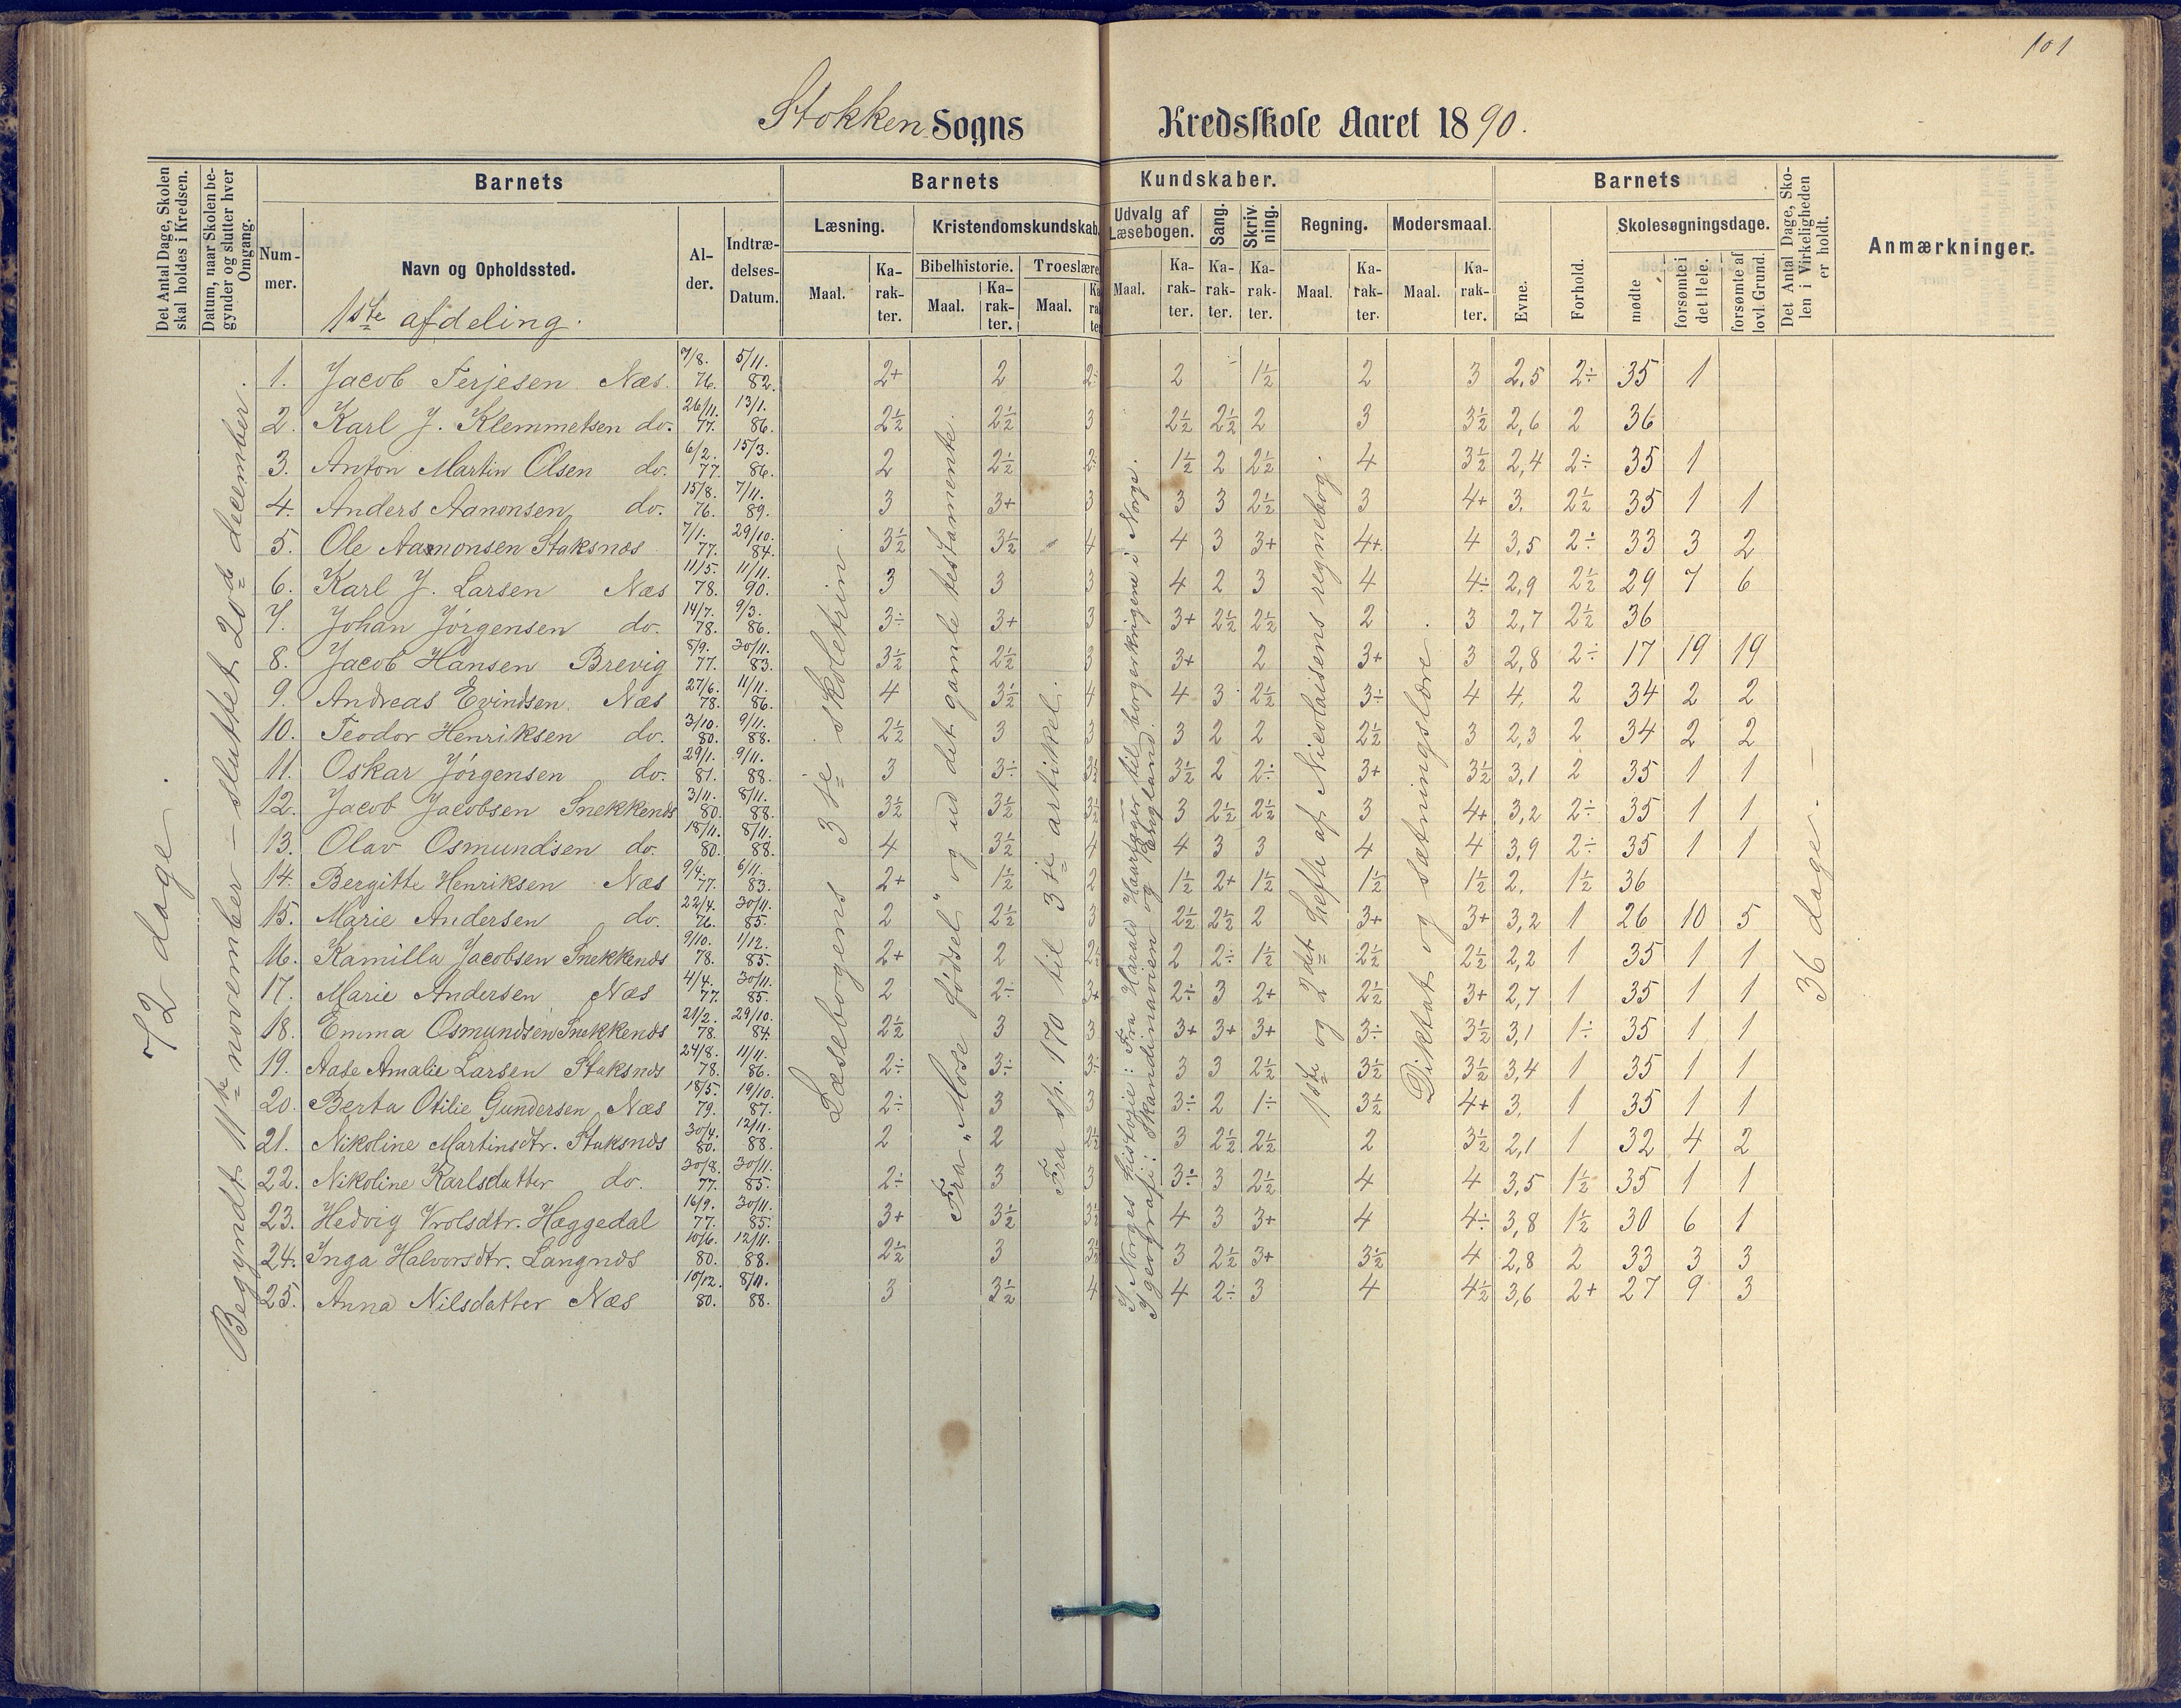 101
Stokken Sogns Kredsskole Aaret 1890.
Det Antal Dage, Skolen skal holdes i Kredsen.
Datum, naar Skolen begynder og slutter hver Omgang.
Barnets
Nummer.
Navn og Opholdssted.
1ste afdeling.
Alder.
Indtrædelses-Datum.
Barnets Kundskaber.
Læsning.
Maal.
Karakter.
Kristendomskundskab.
Bibelhistorie.
Maal.
Karakter.
Troeslære
Maal.
Karakter
Udvalg af Læsebogen.
Maal.
Karakter.
Sang.
Karakter.
Skrivning.
Karakter.
Regning.
Maal.
Karakter.
Modersmaal.
Maal.
Karakter.
Barnets
Evne.
Forhold.
Skolesøgningsdage.
mødte
forsømte i det Hele.
forsømte af lovl. Grund.
Det Antal Dage, Skolen i Virkeligheden er holdt.
Anmærkninger.
72 dage.
Begyndt 11te november – sluttet 20de december.
Læsebogens 3die skoletrin
Fra „Mose fødsel" og ud det gamle testamente.
Fra sp. 170 til 3die artikel.
I Norges historie: Fra Harald Haarfager til borgerkrigene i Norge.
I geografi: Skandinavien og England.
1ste og 2det hefte af Nicolaisens regnebog.
Diktat og sætningslære.
36 dage. –
1. Jacob Terjesen Næs. 7/8. 76. 5/11. 82. 2+ 2 2÷ 2 1½ 2 3 2,5 2÷ 35 1
2. Karl J. Klemmetsen do. 26/11. 77. 13/1. 86. 2½ 2½ 3 2½ 2½ 2 3 3½ 2,6 2 36
3. Anton Martin Olsen do. 6/2. 77. 15/3. 86. 2 2½ 2÷ 1½ 2 2½ 4 3½ 2,4 2÷ 35 1
4. Anders Aanonsen do. 15/8. 76. 7/11. 89. 3 3+ 3 3 3 2½ 3 4+ 3. 2½ 35 1 1
5. Ole Aamonsen Staksnæs 7/1. 77. 29/10. 84. 3½ 3½ 4 4 3 3+ 4+ 4 3,5 2÷ 33 3 2
6. Karl J. Larsen Næs 11/5. 78. 11/11. 90. 3 3 3 4 2 3 4 4÷ 2,9 2½ 29 7 6
7. Johan Jörgensen do. 14/7. 78. 9/3. 86. 3÷ 3+ 3 3+ 2½ 2½ 2 3 2,7 2½ 36
8. Jacob Hansen Brevig 8/9. 77. 30/11. 83. 3½ 2½ 3 3+ 2 3+ 3 2,8 2÷ 17 19 19
9. Andreas Evindsen Næs 27/6. 78. 11/11. 86. 4 3½ 4 4 3 2½ 3÷ 4 4. 2 34 2 2
10. Teodor Henriksen do. 3/10. 80. 9/11. 88. 2½ 3 3 3 2 2 2½ 3 2,3 2 34 2 2
11. Oskar Jörgensen do. 29/1. 81. 9/11. 88. 3 3÷ 3½ 3½ 2 2÷ 3+ 3½ 3,1 2 35 1 1
12. Jacob Jacobsen Snekkenæs 3/11. 80. 8/11. 88. 3½ 3½ 3½ 3 2½ 2½ 3 4+ 3,2 2÷ 35 1 1
13. Olav Osmundsen do. 18/11. 80. 8/11. 88. 4 3½ 4 4 3 3 4 4 3,9 2÷ 35 1 1
14. Bergitte Henriksen Næs 9/4. 77. 6/11. 83. 2+ 1½ 2 1½ 2+ 1½ 1½ 1½ 2. 1½ 36
15. Marie Andersen do. 22/4. 76. 30/11. 85. 2 2½ 3 2½ 2½ 2 3+ 3+ 3,2 1 26 10 5
16. Kamilla Jacobsen Snekkenæs 9/10. 78. 1/12. 85. 2+ 2 2½ 2 2÷ 1½ 2½ 2½ 2,2 1 35 1 1
17. Marie Andersen Næs 4/4. 77. 30/11. 85. 2 2÷ 3+ 2÷ 3 2+ 2½ 3+ 2,7 1 35 1 1
18. Emma Osmundsen Snekkenæs 21/2. 78. 29/10. 84. 2½ 3 3 3+ 3+ 3+ 3÷ 3½ 3,1 1÷ 35 1 1
19. Aase Amalie Larsen Staksnæs 24/8. 78. 11/11. 86. 2÷ 3÷ 3÷ 3 3 2½ 3½ 3½ 3,4 1 35 1 1
20. Berta Otilie Gundersen Næs 18/5. 79. 19/10. 87. 2÷ 3 3 3÷ 2 1÷ 3½ 4+ 3. 1 35 1 1
21. Nikoline Martinsdtr. Staksnæs 30/4. 80. 12/11. 88. 2 2 2½ 3 2½ 2½ 2 3½ 2,1 1 32 4 2
22. Nikoline Karlsdatter do. 30/8. 77. 30/11. 85. 2÷ 3 3 3÷ 3 2½ 4 4 3,5 1½ 35 1 1
23. Hedvig Vrolsdtr. Hæggedal 16/9. 77. 30/11. 85. 3+ 3½ 3½ 4 3 3+ 4 4÷ 3,8 1½ 30 6 1
24. Inga Halvorsdtr. Langnæs 10/6. 80. 12/11. 88. 2½ 3 3½ 3 2½ 3+ 3½ 4 2,8 2 33 3 3
25. Anna Nilsdatter Næs 10/12. 80. 8/11. 88. 3 3½ 4 4 2÷ 3 4 4½ 3,6 2+ 27 9 3